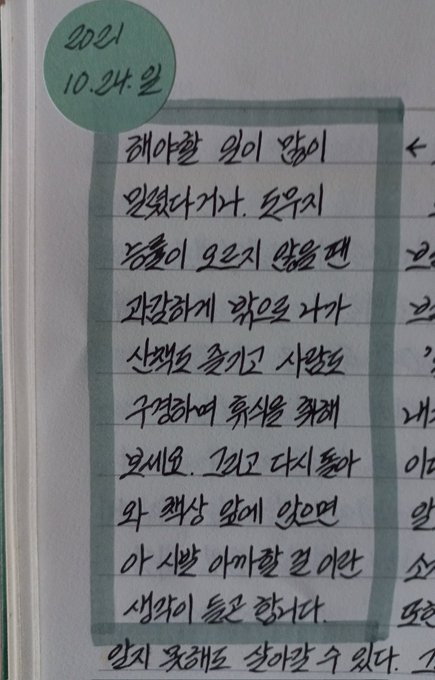 2021
10.24.일
해야할 일이 많이
밀렸다거나. 도무지
능률이 오르지 않을 땐
과감하게 밖으로 나가
산책도 즐기고 사람도
구경하며 휴식을 취해
보세요. 그리고 다시 돌아
와 책상 앞에 앉으면
아 시발 아까할 걸 이란
생각이 들고 합니다.
알지 못해도 살아갈 수 있다. 그
←
내
이다
알
소
또한